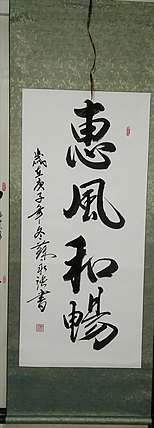 惠風和暢
歲在庚子年冬蘇永法書